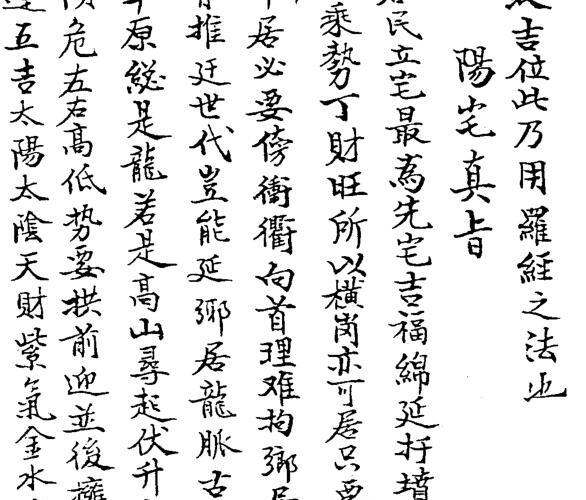 吉位此乃用羅經之法也
陽宅真旨
民立宅最為先宅吉福綿延扞墳
乘勢丁財旺所以橫崗亦可居只要
居必要傍衝衢向首理难拘鄉居
推迁世代豈能延鄉居龍脉古
原総是龍若是高山尋起伏升
危左右高低势要拱前迎並後擁
五吉太陽太陰天財紫氣金水